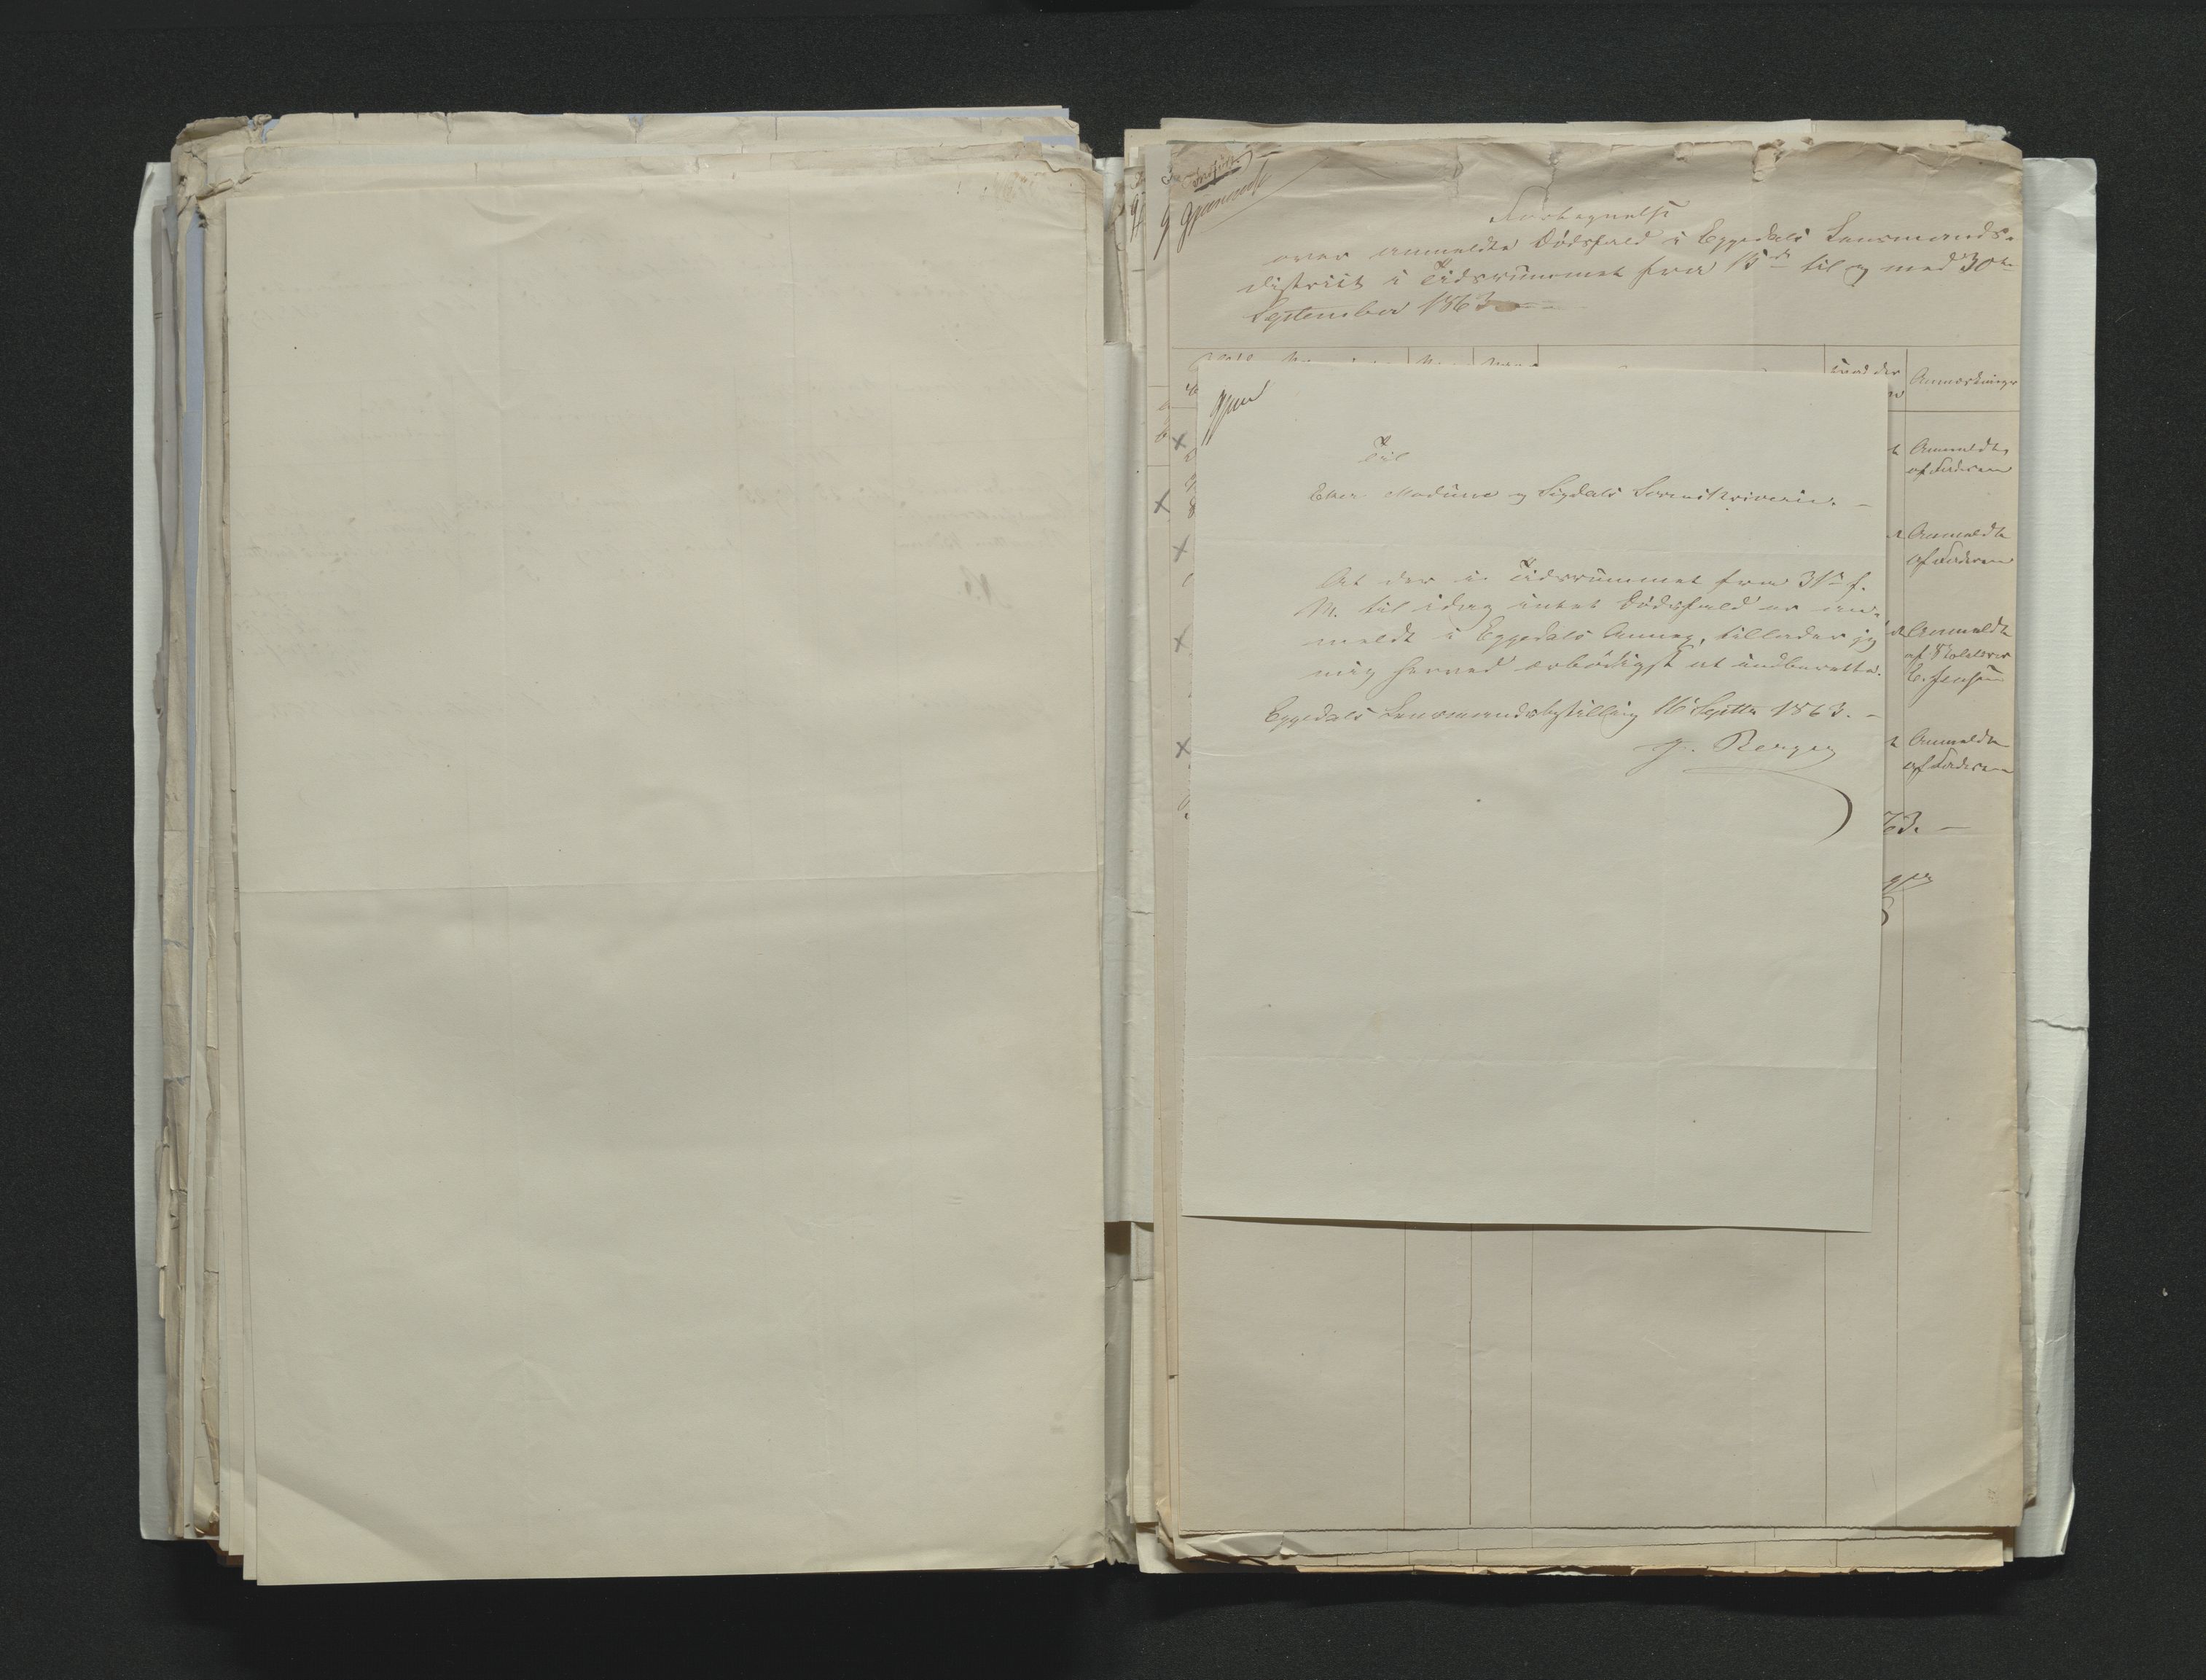 Indført
Gjennemset
Fortegnelse
over anmeldte Dödsfald i Eggedals Lensmands-
district i Tidsrummet fra 15de til og med 30te
September 1863
Anmærkninger
Anmeldt
af Faderen
Anmeldt
af Faderen
Anmeldt
af
E. Jensen
Anmeldt
af Faderen
63. —
Gjen
Til
Eker Modum og Sigdals Sorenskriverie. —
At der i Tidsrummet fra 31te f.
M. til idag intet Dödsfald er an-
meldt i Eggedals Annex, tillader jeg
mig herved ærbödigst at indberette.
Eggedals Lensmandsbestilling 16 Septbr 1863. —
J. Berger